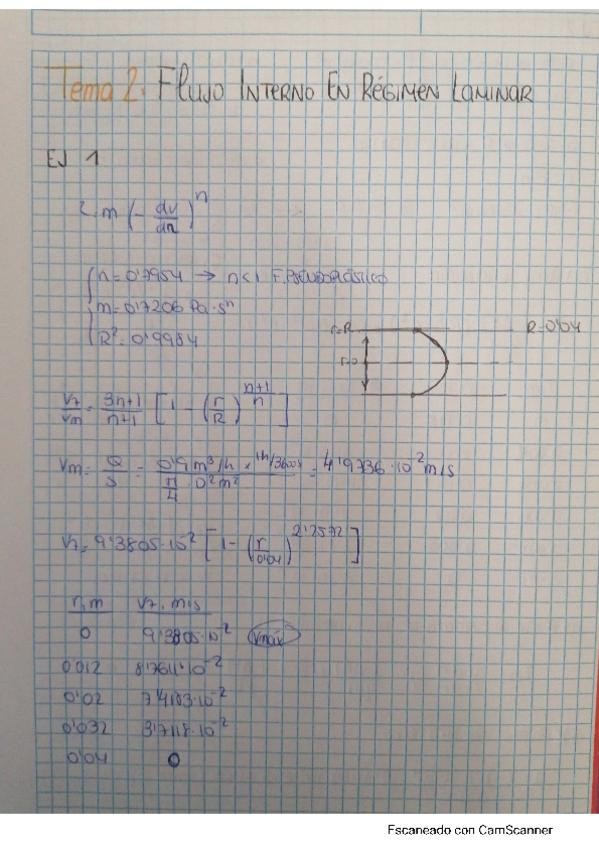 Tema 2. FLUJO INTERNO EN RÉGIMEN LAMINAR
EJ 1
τ=m (- dv/dr)^n
n=0'7954 → n<1 F.PSEUDOPLÁSTICO
m=0'7206 Pa·s^n
R²=0'9984
r=R R=0'04
r=0
Vz/Vm = 3n+1/n+1 [1 - (r/R)^(n+1/n)]
Vm= Q/S = 0'9 m³/h × 1h/3600s / π/4 D² m² = 4'9736·10^-2 m/s
Vz= 9'3805·10^-2 [1-(r/0'04)^2'2572]
r,m Vz, m/s
0 9'3805·10^-2 Vmáx
0'012 8'7611·10^-2
0'02 7'4183·10^-2
0'032 3'7118·10^-2
0'04 0
Escaneado con CamScanner